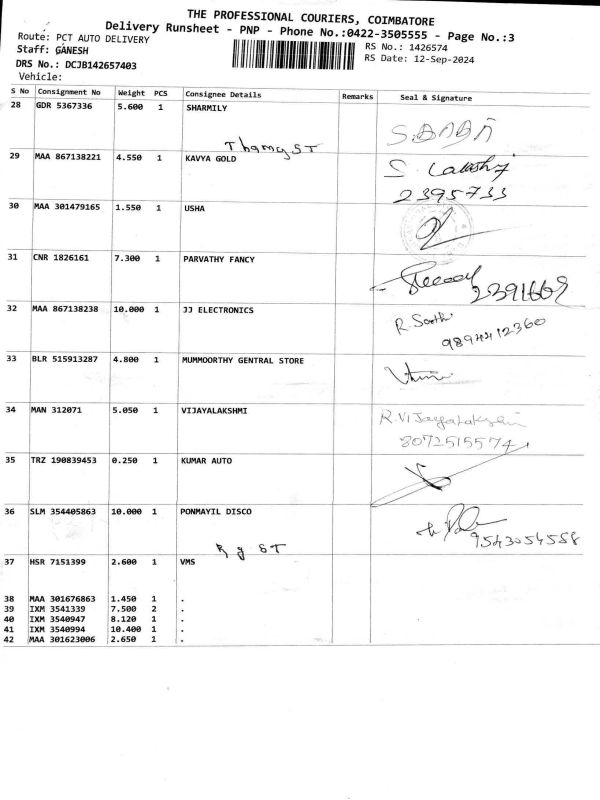 THE PROFESSIONAL COURIERS, COIMBATORE
Delivery Runsheet - PNP - Phone No.:0422-3505555 - Page No.:3
Route: PCT AUTO DELIVERY
RS No.: 1426574
Staff: GANESH
RS Date: 12-Sep-2024
DRS No.: DCJB142657403
Vehicle:
S No Consignment No Weight PCS Consignee Details Remarks Seal & Signature
28 GDR 5367336 5.600 1 SHARMILY
29 MAA 867138221 4.550 1 KAVYA GOLD
2395733
30 MAA 301479165 1.550 1 USHA
31 CNR 1826161 7.300 1 PARVATHY FANCY
32 MAA 867138238 10.000 1 JJ ELECTRONICS
9894412360
33 BLR 515913287 4.800 1 MUMMOORTHY GENTRAL STORE
34 MAN 312071 5.050 1 VIJAYALAKSHMI
8072515574
35 TRZ 190839453 0.250 1 KUMAR AUTO
36 SLM 354405863 10.000 1 PONMAYIL DISCO
9543054588
R g ST
37 HSR 7151399 2.600 1 VMS
38 MAA 301676863 1.450 1 .
39 IXM 3541339 7.500 2 .
40 IXM 3540947 8.120 1 .
41 IXM 3540994 10.400 1 .
42 MAA 301623006 2.650 1 .